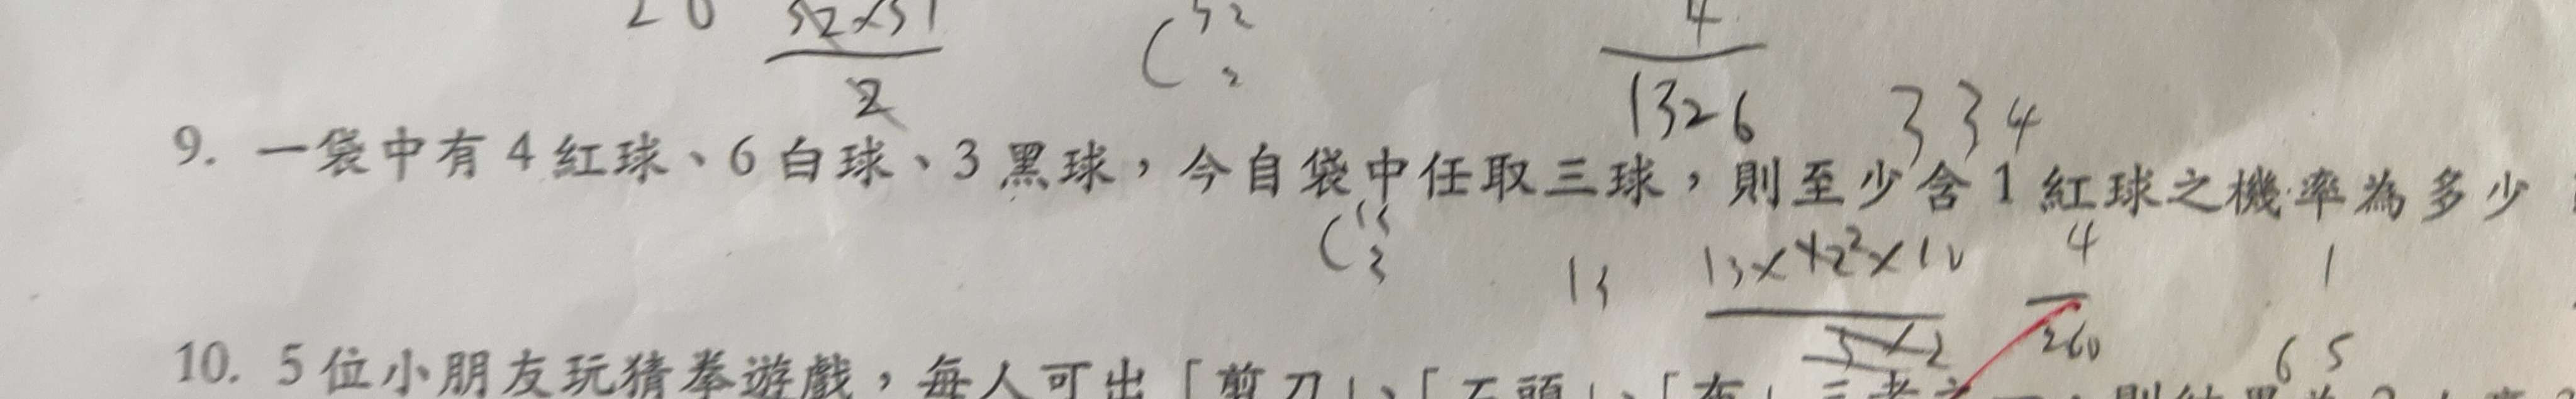 20 52×51 C 52 4
2 2 1326 334
9. 一袋中有 4 紅球、6 白球、3 黑球，今自袋中任取三球，則至少含 1 紅球之機率為多少
C 13 3 13 13×12²×10 4 1
3×2 260 65
10. 5 位小朋友玩猜拳遊戲，每人可出「剪刀」、「石頭」、「布」三者